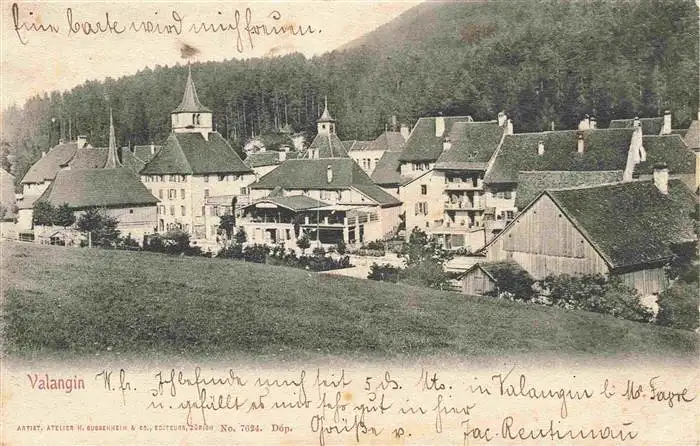 Eine Carte wird mich freuen.
Valangin W. fr. Ich befinde mich seit 5. ds. Mts. in Valangin b. Mr. Favre
u. gefällt es mir sehr gut in hier
Grüße v. Jac.
ARTIST. ATELIER H. GUGGENHEIM & Co., EDITEURS, ZÜRICH No. 7624. Dép.